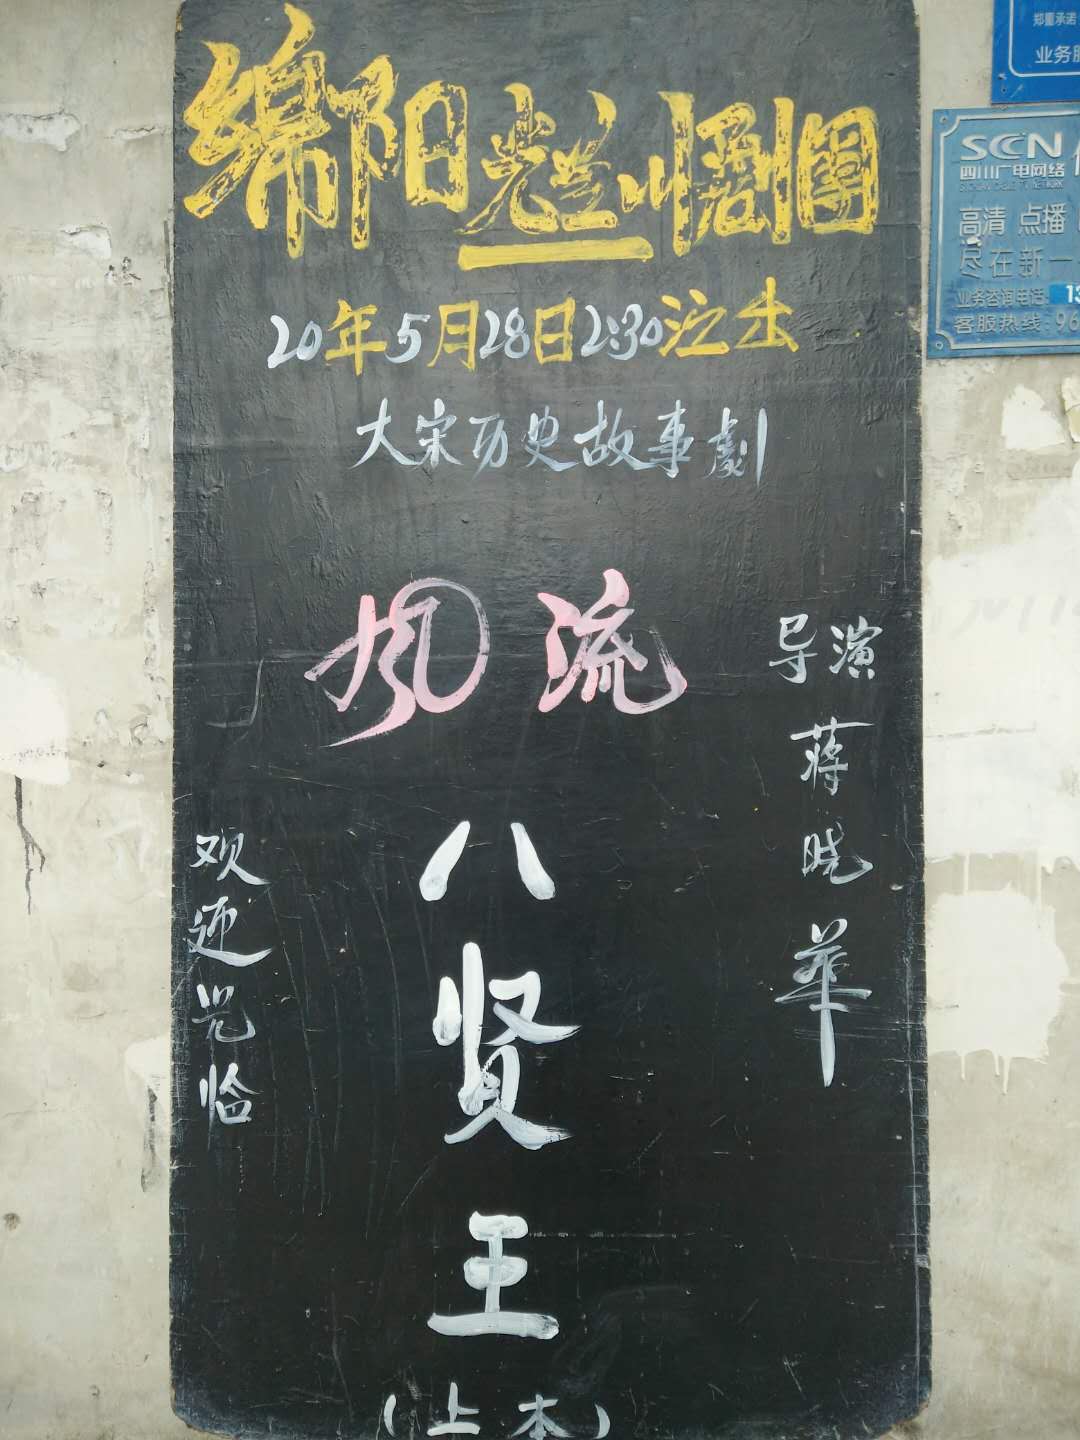 绵阳光兰川剧團
20年5月28日2:30演出
大宋历史故事劇
风流
八贤王
(上本)
导演
蒋晓華
欢迎光临
郑重承诺
业务服
SCN
四川广电网络
SICHUAN CABLE TV NETWORK
高清 点播
尽在新一
业务咨询电话: 13
客服热线: 96